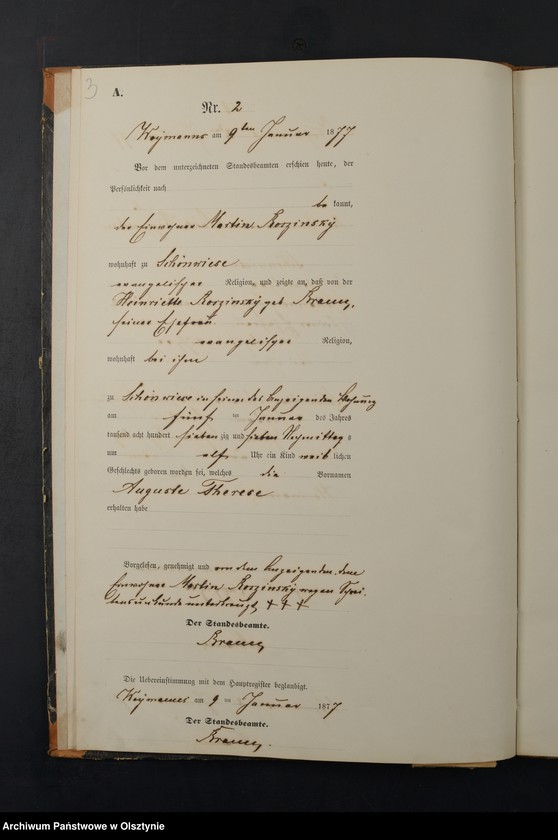 3
A.
Nr. 2
am 9ten Januar 1877
Vor dem unterzeichneten Standesbeamten erschien heute, der
Persönlichkeit nach
be kannt,
der Einwohner Martin Roszinsky
wohnhaft zu Schönwiese
evangelischer Religion, und zeigte an, daß von der
Heinriette Roszinsky geb.
seiner Ehefrau
evangelischer Religion,
wohnhaft bei ihm
zu Schönwiese in seiner des Anzeigenden Wohnung
am fünf ten Januar des Jahres
tausend acht hundert sieben zig und sieben Vormittag s
um elf Uhr ein Kind weib lichen
Geschlechts geboren worden sei, welches die Vornamen
Auguste Therese
erhalten habe
Vorgelesen, genehmigt und von dem Anzeigenden dem
Einwohner Martin Roszinsky wegen Schrei-
bensunkunde unterkreuzt + + +
Der Standesbeamte.
Die Uebereinstimmung mit dem Hauptregister beglaubigt.
am 9 ten Januar 1877
Der Standesbeamte.
Archiwum Państwowe w Olsztynie